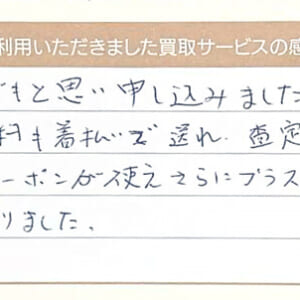 利用いただきました買取サービスの感
でもと思い申し込みました
料も着払いで送れ、査定
ーポンが使えさらにプラス
りました。